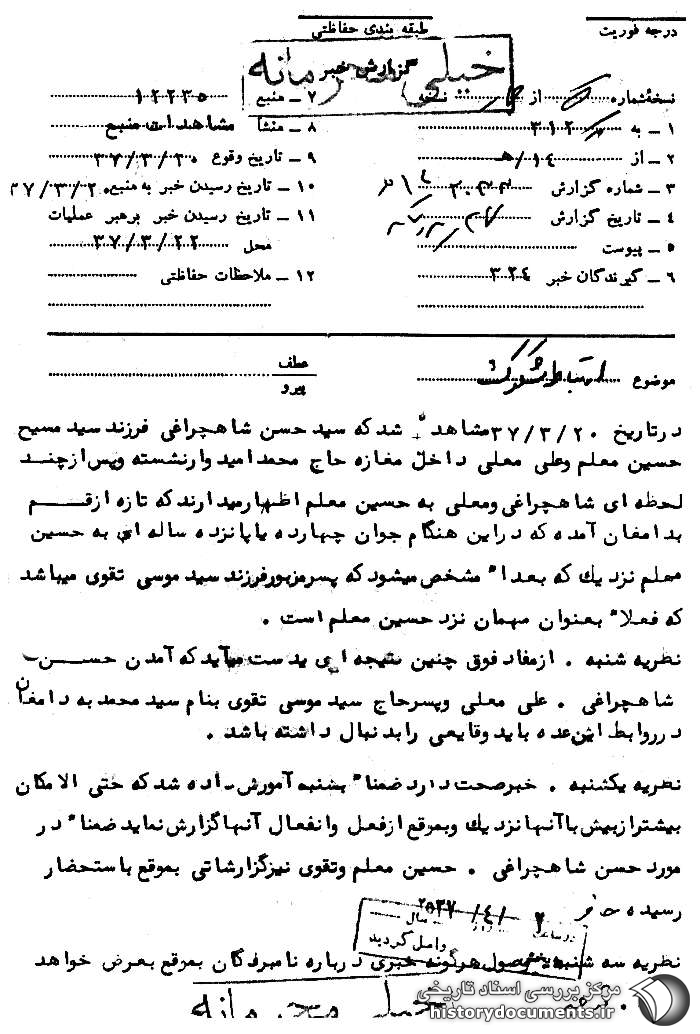 درجه فوریت
طبقه بندی حفاظتی
خیلی محرمانه
گزارش خبر
نسخهٔ شماره از نسخه
۱ ـ به ۳۱۲
۲ ـ از ۱۴/هـ
۳ ـ شماره گزارش
۴ ـ تاریخ گزارش
۵ ـ پیوست
۶ ـ گیرندگان خبر ۳۲۴
۷ ـ منبع ۱۲۲۳۵
۸ ـ منشأ مشاهدات منبع
۹ ـ تاریخ وقوع ۳۷/۳/۲۰
۱۰ ـ تاریخ رسیدن خبر به منبع ۳۷/۳/۲۰
۱۱ ـ تاریخ رسیدن خبر برهبر عملیات
محل ۳۷/۳/۲۲
۱۲ ـ ملاحظات حفاظتی
موضوع
عطف
پیرو
درتاریخ ۳۷/۳/۲۰ مشاهده شد که سید حسن شاهچراغی فرزند سید مسیح
حسین معلم وعلی معلی داخل مغازه حاج محمد امیدوار نشسته وپس ازچند
لحظه ای شاهچراغی ومعلی به حسین معلم اظهار میدارند که تازه ازقم
بدامغان آمده که دراین هنگام جوان چهارده یا پانزده ساله ای به حسین
معلم نزدیك که بعداً مشخص میشود که پسر مزبور فرزند سید موسی تقوی میباشد
که فعلاً بعنوان مهمان نزد حسین معلم است .
نظریه شنبه . ازمفاد فوق چنین نتیجه ای بدست میآید که آمدن حسن
شاهچراغی . علی معلی وپسر حاج سید موسی تقوی بنام سید محمد به دامغان
درروابط این عده باید وقایعی را بدنبال داشته باشد .
نظریه یکشنبه . خبرصحت دارد ضمناً بشنبه آموزش داده شد که حتی الامکان
بیشتر ازپیش با آنها نزدیك وبموقع ازفعل وانفعال آنها گزارش نماید ضمناً در
مورد حسن شاهچراغی . حسین معلم وتقوی نیز گزارشاتی بموقع باستحضار
رسیده
۲۵۳۷/۴/
در ساعت روز سال
واصل گردید
نظریه سه شنبه . بمحض وصول هرگونه خبری درباره نامبردگان بموقع بعرض خواهد
خیلی محرمانه
مرکز بررسی اسناد تاریخی
historydocuments.ir